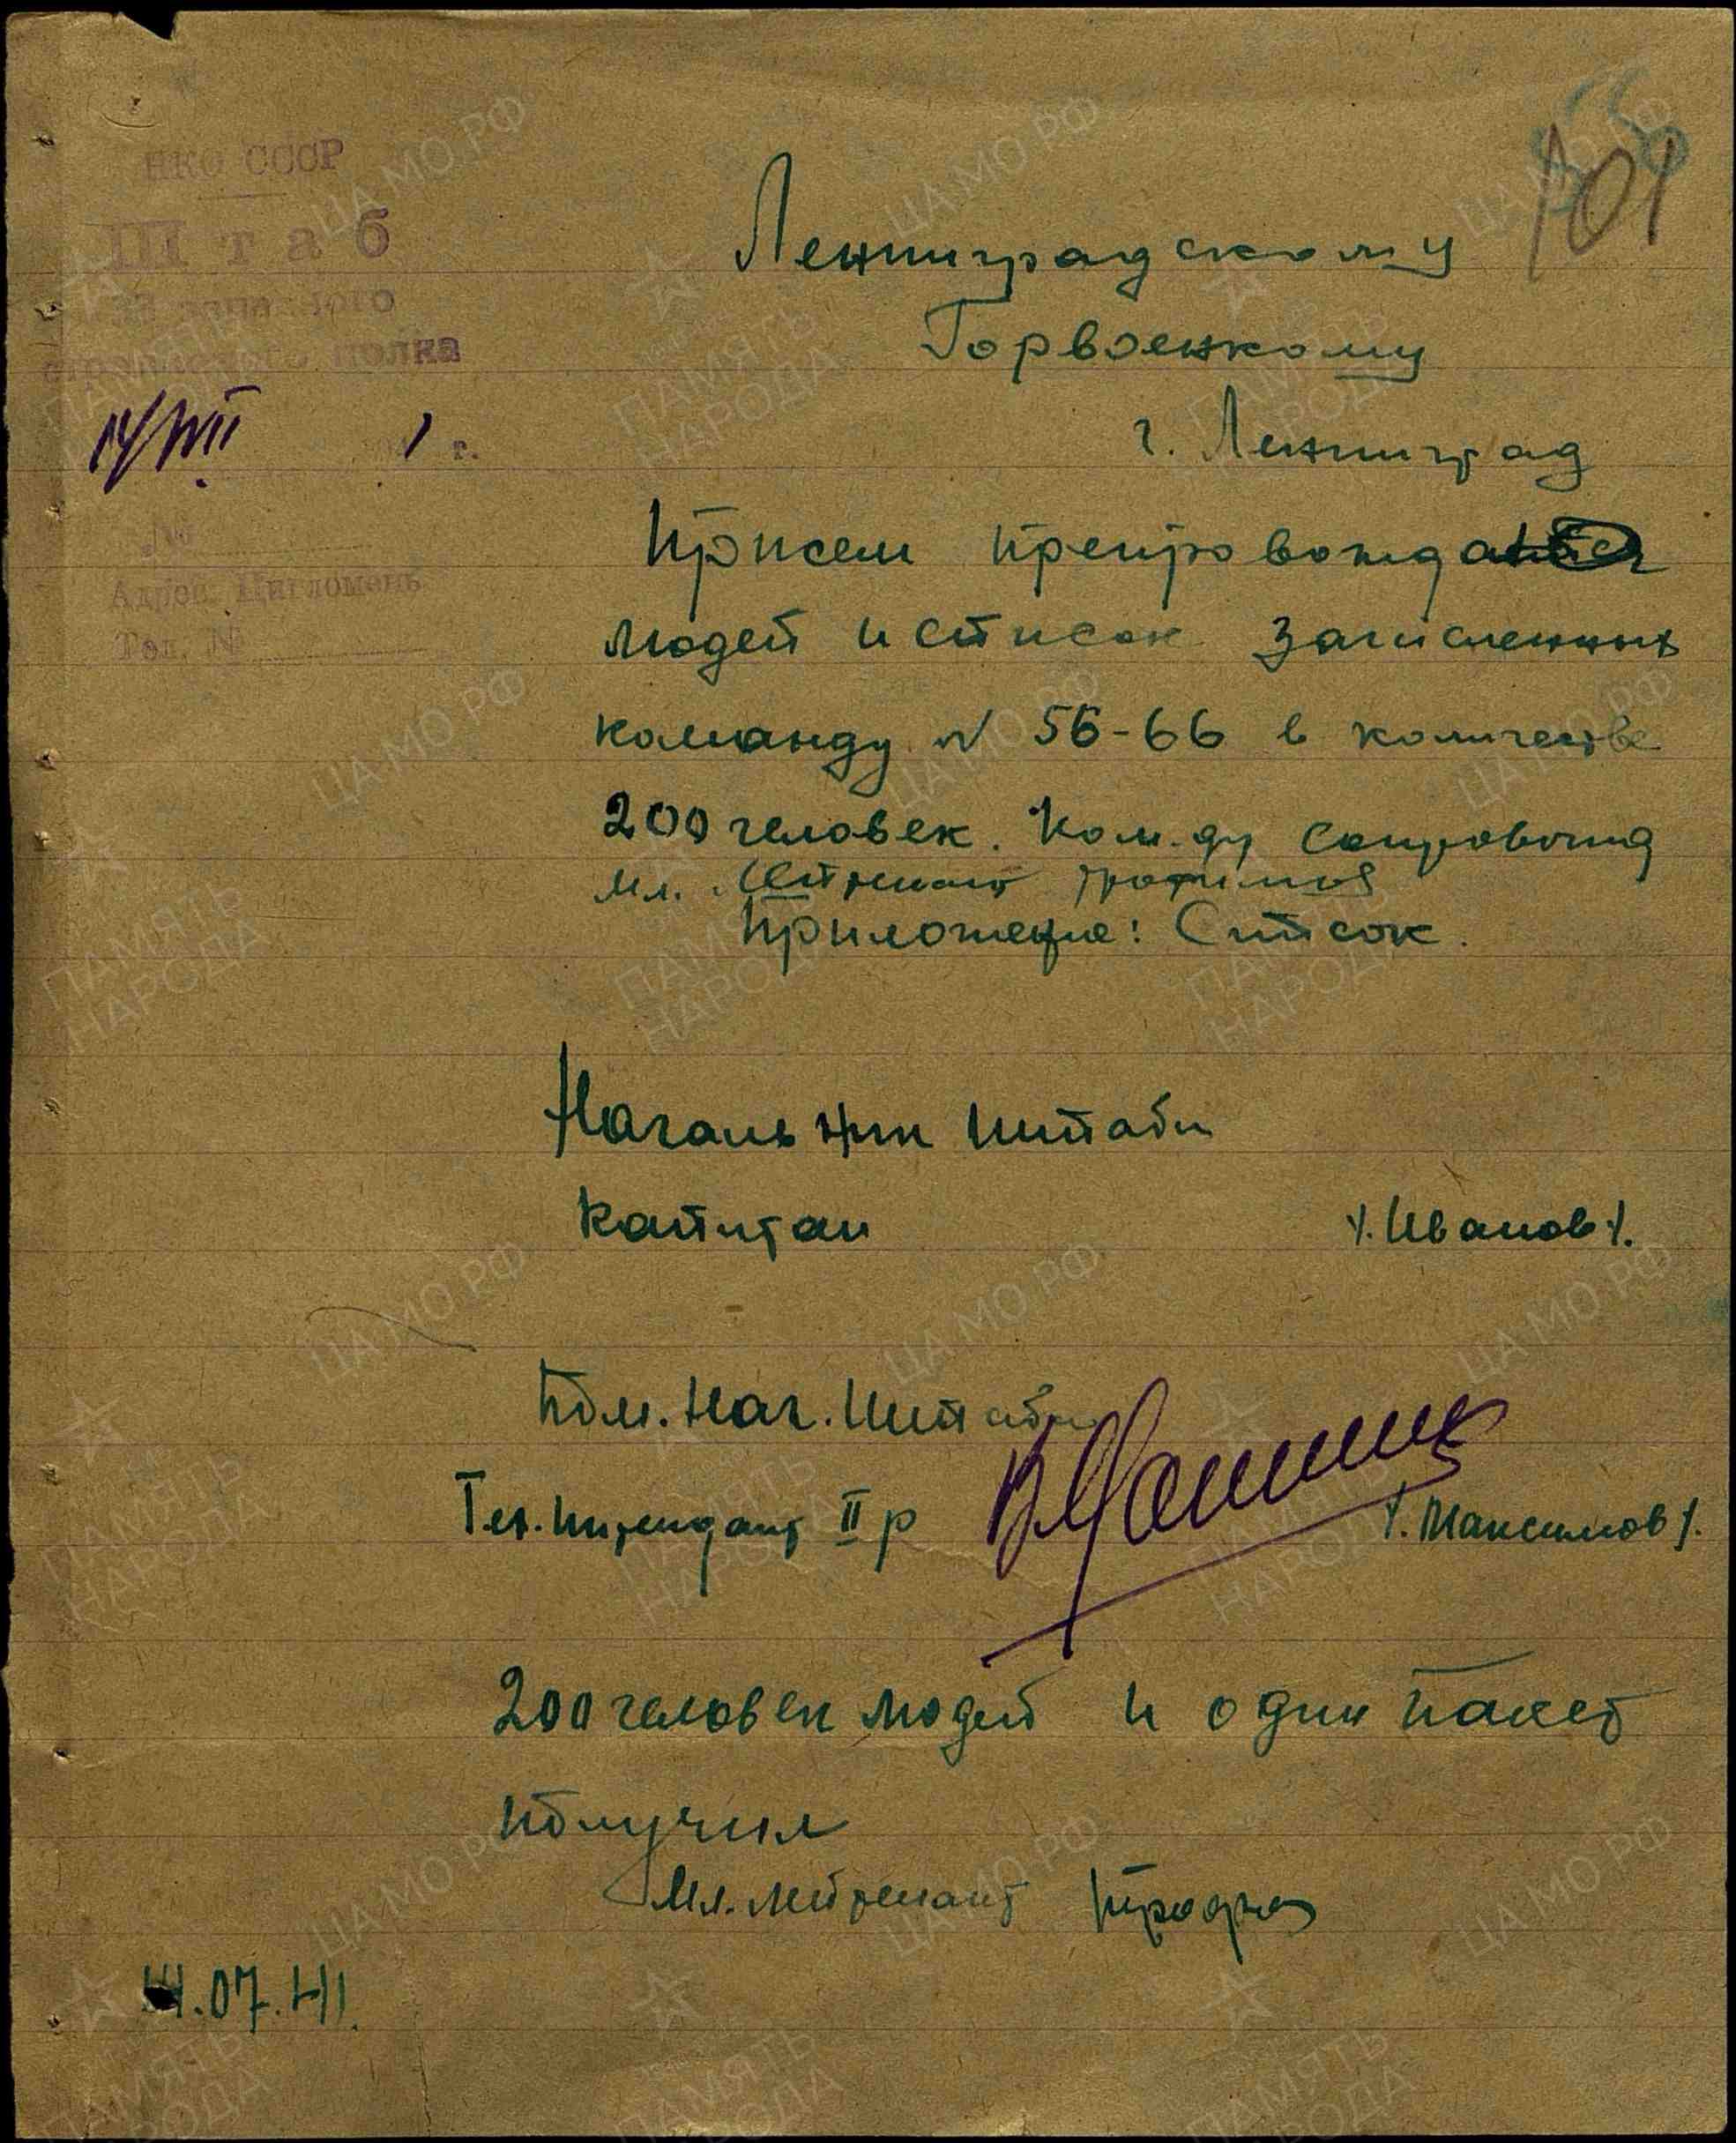 101
НКО СССР
Штаб
запасного
стрелкового полка
14/VII 1 г.
№
Адрес: Цигломень
Тел. №
Ленинградскому
Горвоенкому
г. Ленинград
При сем препровождаются
людей и список зачисленных
команду № 56-66 в количестве
200 человек. Ком-ду сопровожд
мл. лейтенант Трофимов
Приложение: Список.
Начальник штаба
Капитан /. Иванов /.
Пом. Нач. Штаба
Тех. Интендант II р /. Максимов /.
200 человек людей и один пакет
получил
Мл. лейтенант
14.07.41.
ЦА МО РФ
ПАМЯТЬ
НАРОДА